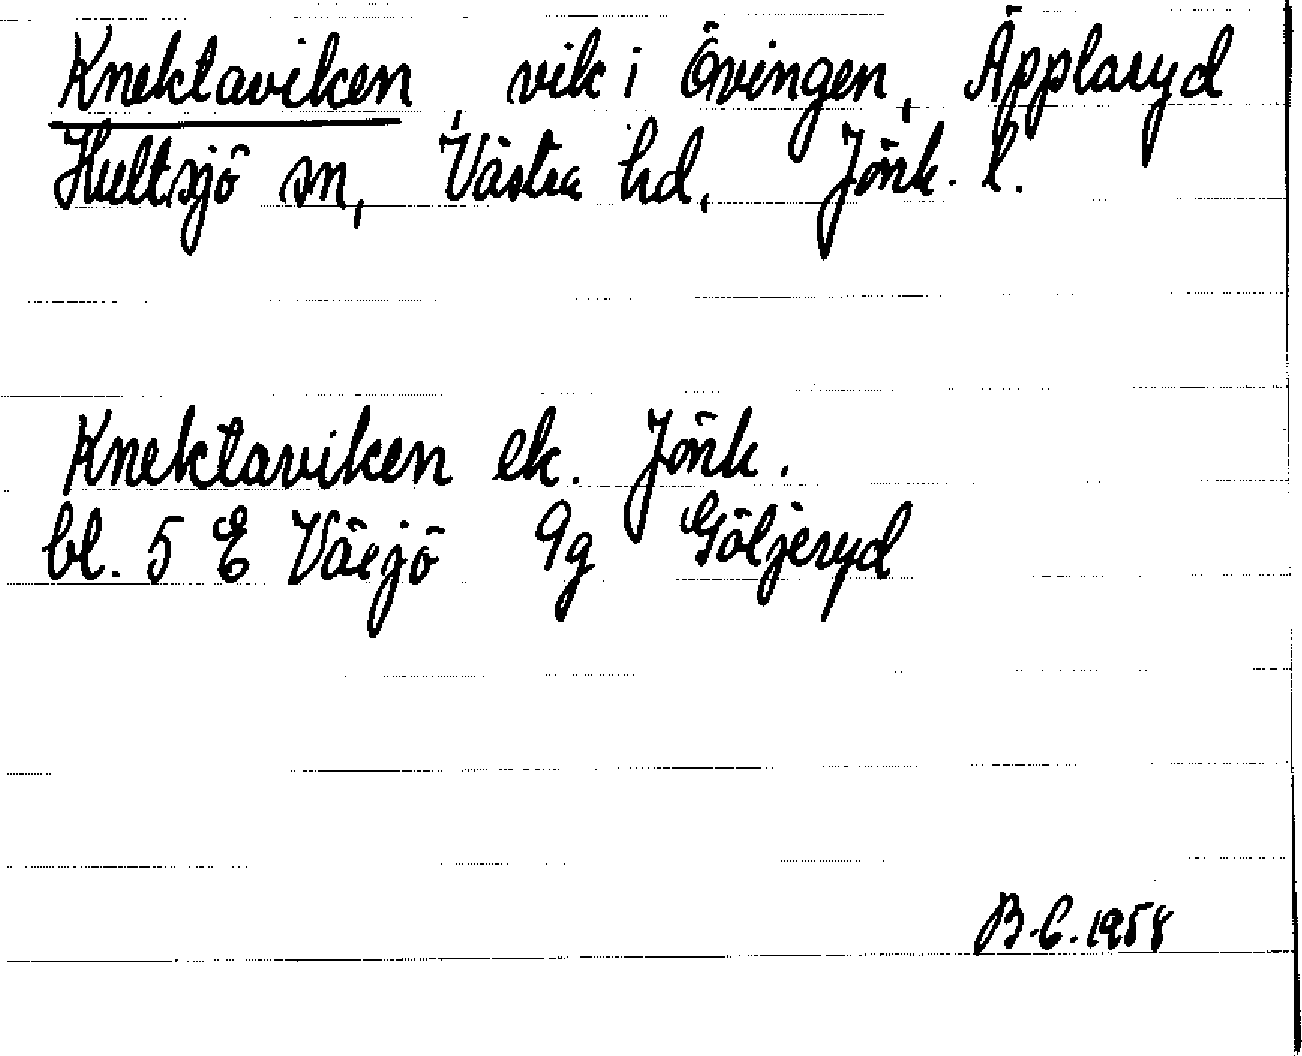 Knektaviken, vik i Övingen, Äpplaryd
Hultsjö sn, Västra hd, Jönk. l.
Knektaviken ek. Jönk.
bl. 5 E Växjö 9g Göljeryd
B.C. 1958